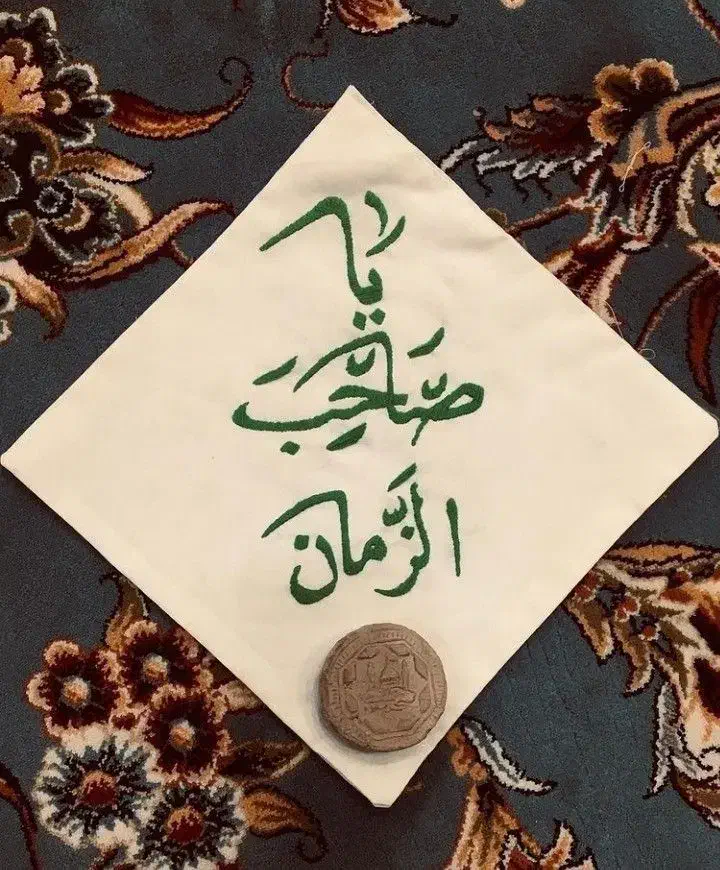 يا
صَّاحِبَ
الزَّمان